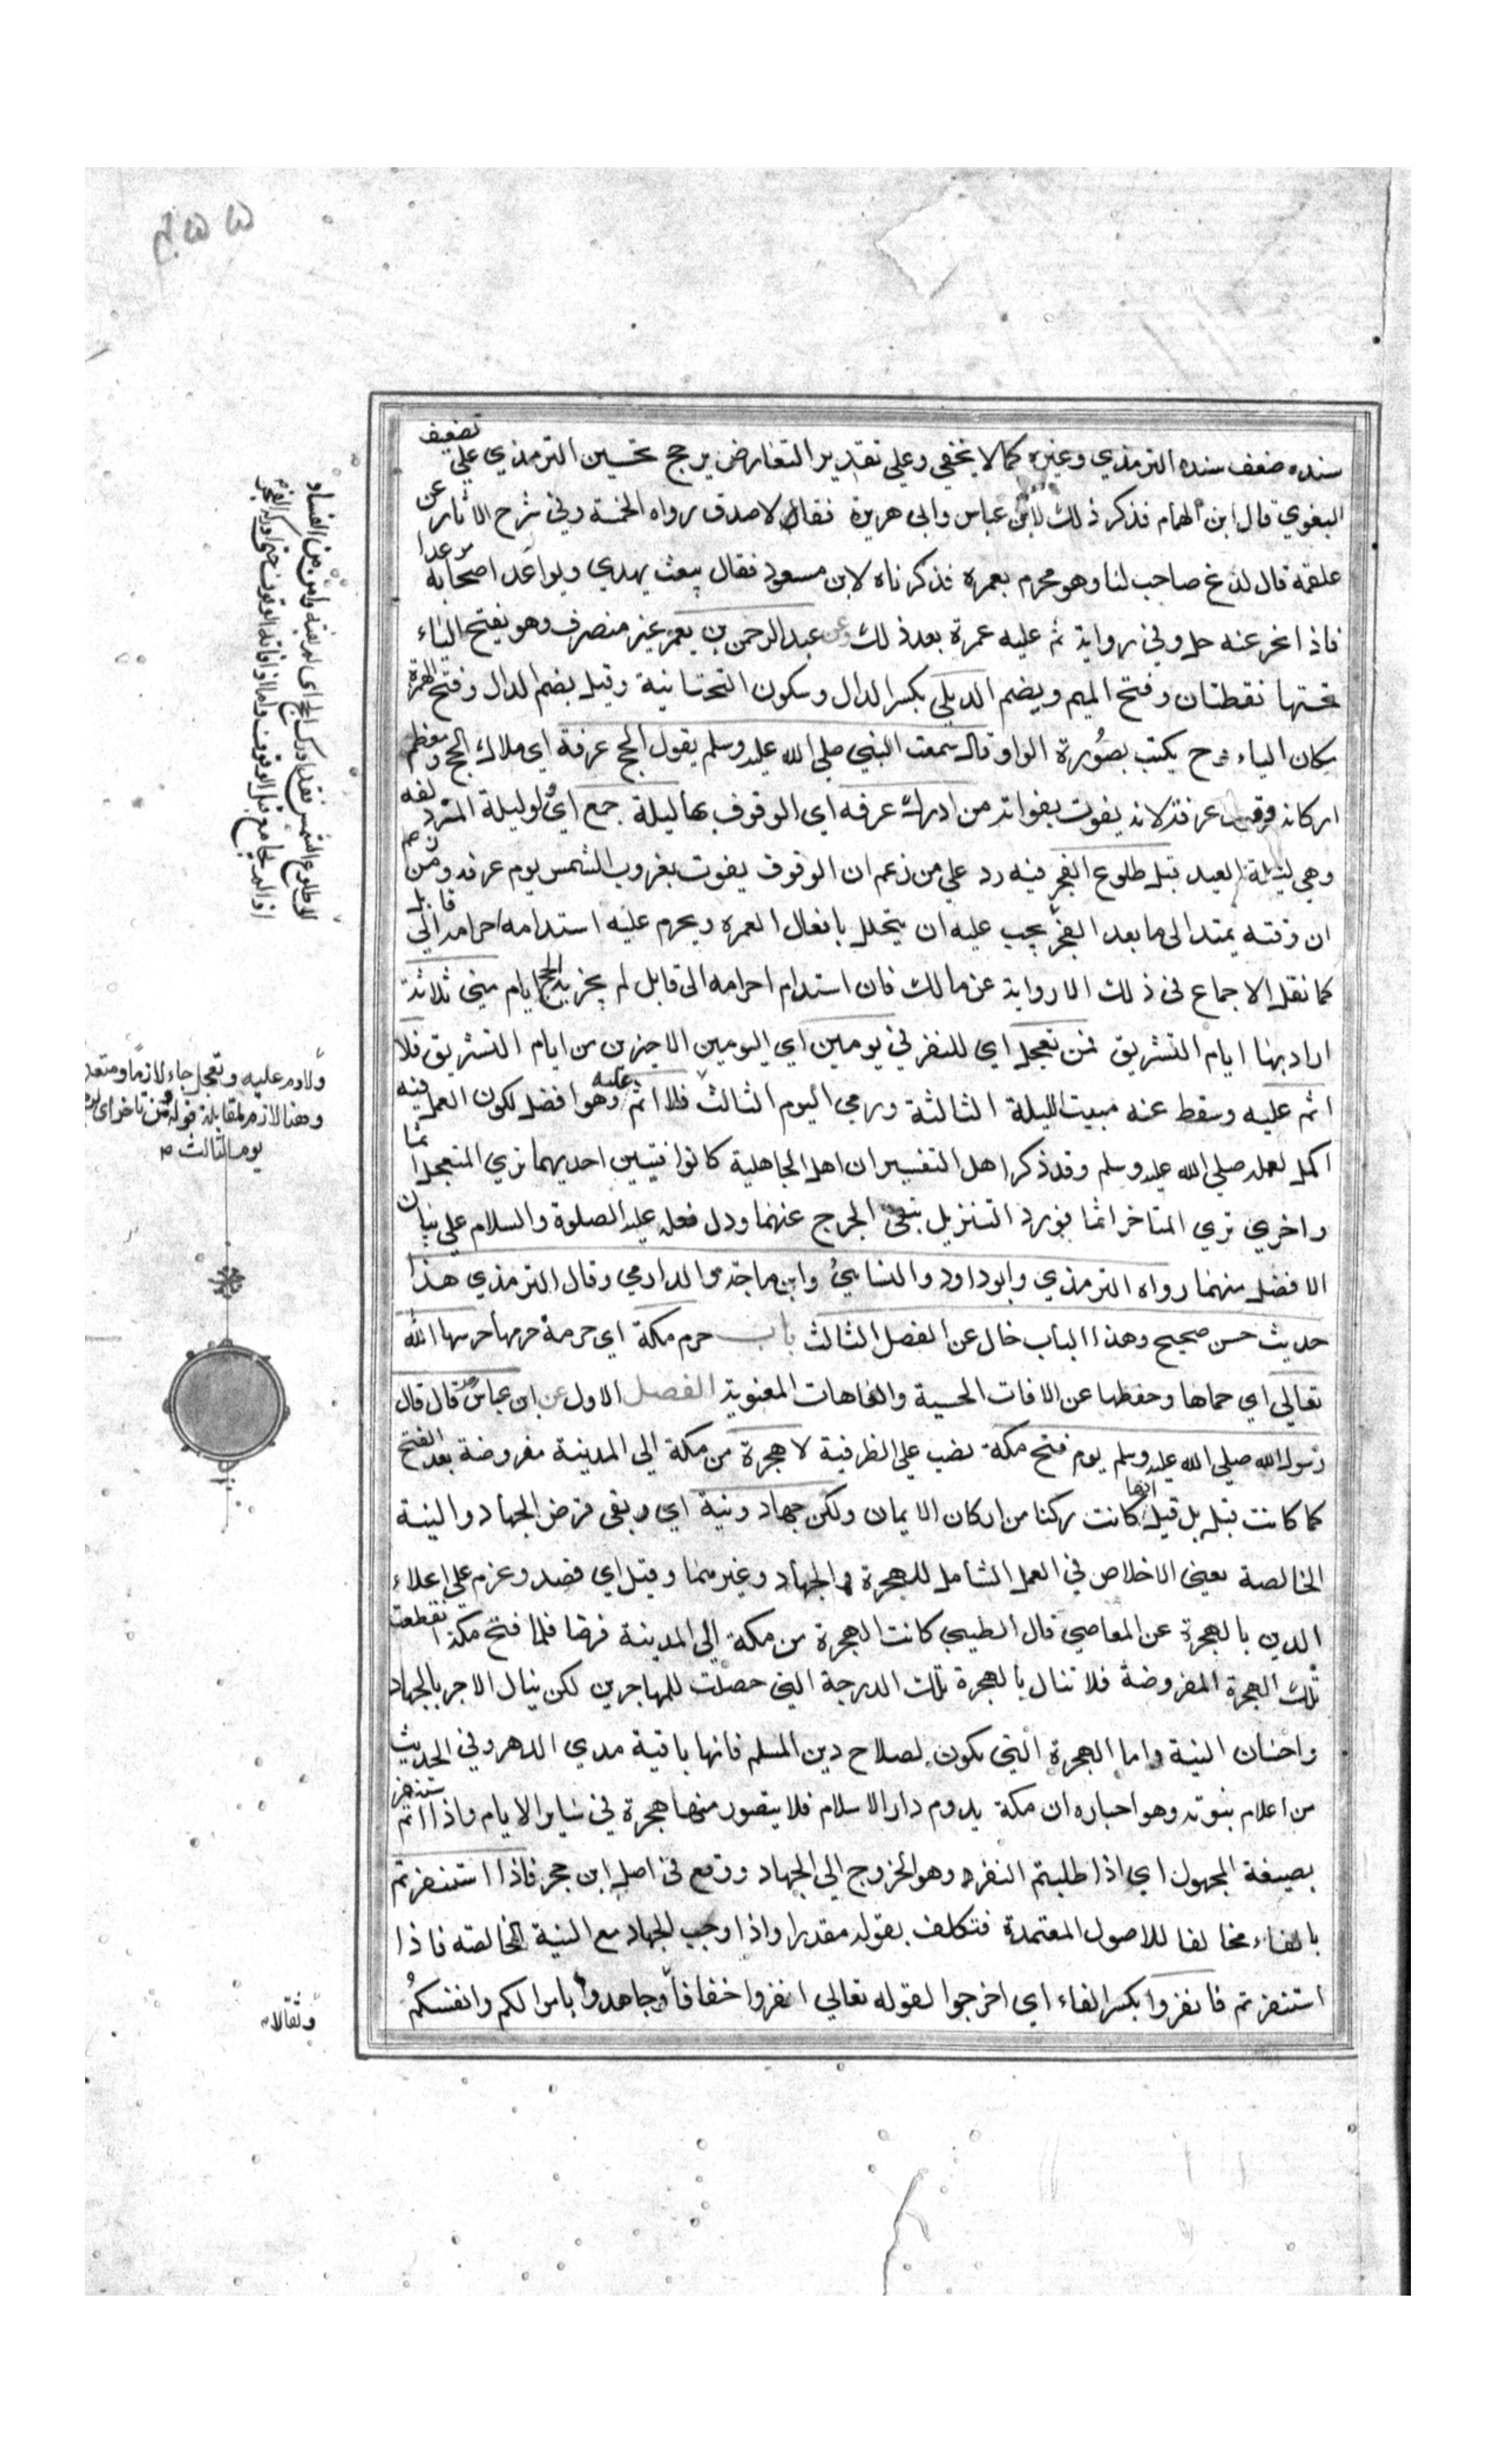 سنده ضعف سنده الترمذي وغيره كما لا يخفي وعلي تقدير التعارض يرجح تحسين الترمذي علي تضعيف
البغوي قال ابن الهمام فذكر ذلك لابن عباس وابي هريرة فقالا صدق رواه الخمسة وفي شرح الاثار عن
علقمة قال لدغ صاحب لنا وهو محرم بعمرة فذكرناه لابن مسعود فقال يبعث بهدي ويواعد اصحابه موعدا
فاذا نحر عنه حل وفي رواية ثم عليه عمرة بعد ذلك وعن عبد الرحمن بن يعمر غير منصرف وهو بفتح الياء
تحتها نقطتان وفتح الميم ويضم الديلي بكسر الدال وسكون التحتانية وقيل بضم الدال وفتح الهمزة
مكان الياء وح يكتب بصورة الواو قال سمعت النبي صلي الله عليه وسلم يقول الحج عرفة اي ملاك الحج ومعظم
اركانه وقوف عرفة لانه يفوت بفواته من ادرك عرفه اي الوقوف بها ليلة جمع اي ولو ليلة المزدلفه
وهي ليلة العيد قبل طلوع الفجر فيه رد علي من زعم ان الوقوف يفوت بغروب الشمس يوم عرفه ومن زعم
ان وقته يمتد الى ما بعد الفجر يجب عليه ان يتحلل بافعال العمره ويحرم عليه استدامه احرامه الي قابل
كما نقل الاجماع في ذلك الا رواية عن مالك فان استدام احرامه الى قابل لم يجزيه الحج ايام منى ثلاثة
اراد بها ايام التشريق فمن تعجل اي للنفر في يومين اي اليومين الاخيرين من ايام التشريق فلا
اثم عليه وسقط عنه مبيت الليلة الثالثة ورمي اليوم الثالث فلا اثم عليه وهو افضل لكون العمل فيه
اكمل لعمله صلي الله عليه وسلم وقد ذكر اهل التفسير ان اهل الجاهلية كانوا فئتين احديهما تري المتعجل اثما
واخري تري المتاخر اثما فورد التنزيل بنفي الحرج عنهما ودل فعله عليه الصلوة والسلام علي بيان
الافضل منهما رواه الترمذي وابو داود والنسايئ وابن ماجة والدارمي وقال الترمذي هذا
حديث حسن صحيح وهذا الباب خال عن الفصل الثالث باب حرم مكة اي حرمة حرمها حرسها الله
تعالي اي حماها وحفظها عن الافات الحسية والعاهات المعنوية الفصل الاول عن ابن عباس قال قال
رسول الله صلي الله عليه وسلم يوم فتح مكة نصب علي الظرفية لا هجرة من مكة الي المدينة مفروضة بعد الفتح
كما كانت قبله بل قيل انها كانت ركنا من اركان الايمان ولكن جهاد ونية اي وبقي فرض الجهاد والنية
الخالصة يعني الاخلاص في العمل الشامل للهجرة والجهاد وغيرهما وقيل اي قصد وعزم علي اعلاء
الدين بالهجرة عن المعاصي قال الطيبي كانت الهجرة من مكة الي المدينة فرضا فلما فتح مكة انقطعت
تلك الهجرة المفروضة فلا تنال بالهجرة تلك الدرجة التي حصلت للمهاجرين لكن ينال الاجر بالجهاد
واحسان النية واما الهجرة التي تكون لصلاح دين المسلم فانها باقية مدي الدهر وفي الحديث
من اعلام نبوته وهو اخباره ان مكة يدوم دار الاسلام فلا يتصور منها هجرة في ساير الايام واذا استنفرتم
بصيغة المجهول اي اذا طلبتم النفر وهو الخروج الي الجهاد ووقع في اصل ابن حجر فاذا استنفرتم
بالفاء مخالفا للاصول المعتمدة فتكلف بقوله مقدرا واذا وجب الجهاد مع النية الخالصه فاذا
استنفرتم فانفروا بكسر الفاء اي اخرجوا لقوله تعالي انفروا خفافا وجاهدوا باموالكم وانفسكم
ولا دم عليه وتعجل جاء لازما ومتعد
وهنا لازم لمقابلة قوله ومن تاخر اي
يوم الثالث
وثقالا